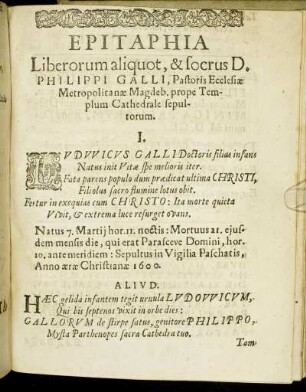 EPITAPHIA
Liberorum aliquot, & socrus D.
PHILIPPI GALLI, Pastoris Ecclesiæ
Metropolitanæ Magdeb. prope Tem-
plum Cathedrale sepul-
torum.
I.
LVDVVICVS GALLI Doctoris filius infans
Natus init Vitæ spe melioris iter.
Fata parens populo dum prædicat ultima CHRISTI,
Filiolus sacro flumine lotus obit.
Fertur in exequias cum CHRISTO: Ita morte quieta
Vivit, & extrema luce resurget ovans.
Natus 7. Martij hor. 11. noctis: Mortuus 21. ejus-
dem mensis die, qui erat Parasceve Domini, hor.
10. antemeridiem: Sepultus in Vigilia Paschatis,
Anno ætæ Christianæ 1600.
ALIVD.
HÆC gelida infantem tegit urnula LVDOVVICVM,
Qui bis septenos vixit in orbe dies:
GALLORVM de stirpe satus, genitore PHILIPPO,
Mysta Parthenopes sacra Cathedra tuo.
Tam